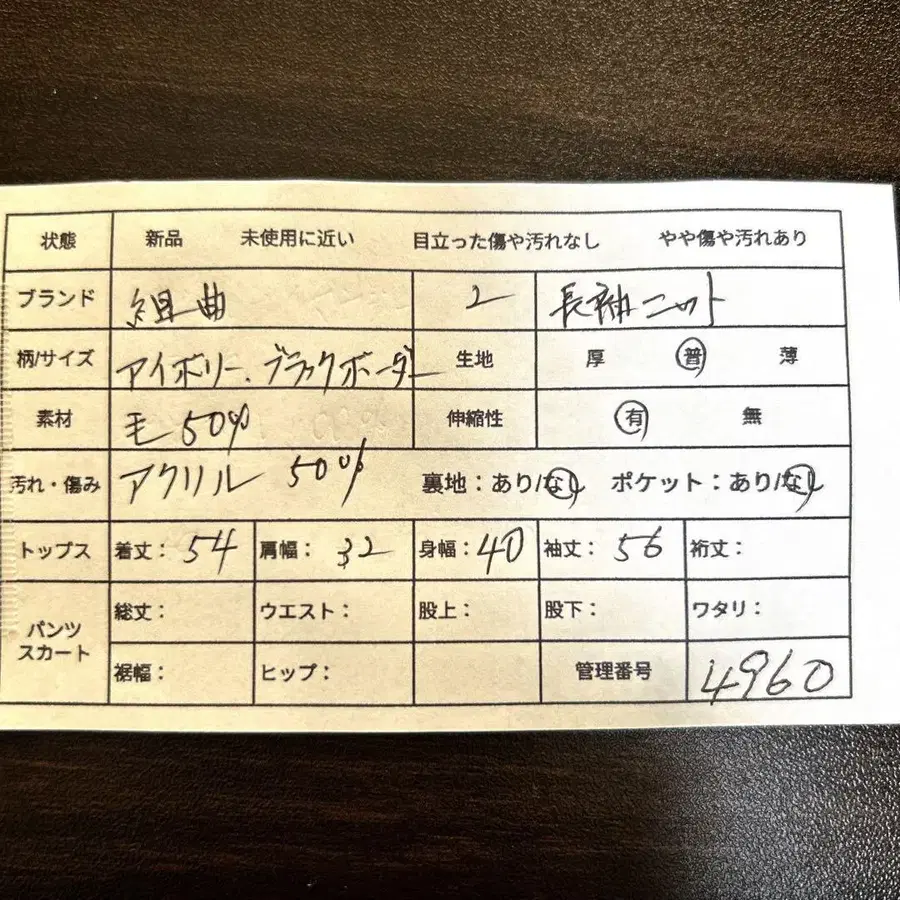 状態 新品 未使用に近い 目立った傷や汚れなし やや傷や汚れあり
ブランド 組曲 2 長袖ニット
柄/サイズ アイボリー、ブラックボーダー 生地 厚 普 薄
素材 毛50% 伸縮性 有 無
汚れ・傷み アクリル 50% 裏地：あり/なし ポケット：あり/なし
トップス 着丈：54 肩幅：32 身幅：40 袖丈：56 裄丈：
パンツ スカート 総丈： ウエスト： 股上： 股下： ワタリ：
裾幅： ヒップ： 管理番号 4960